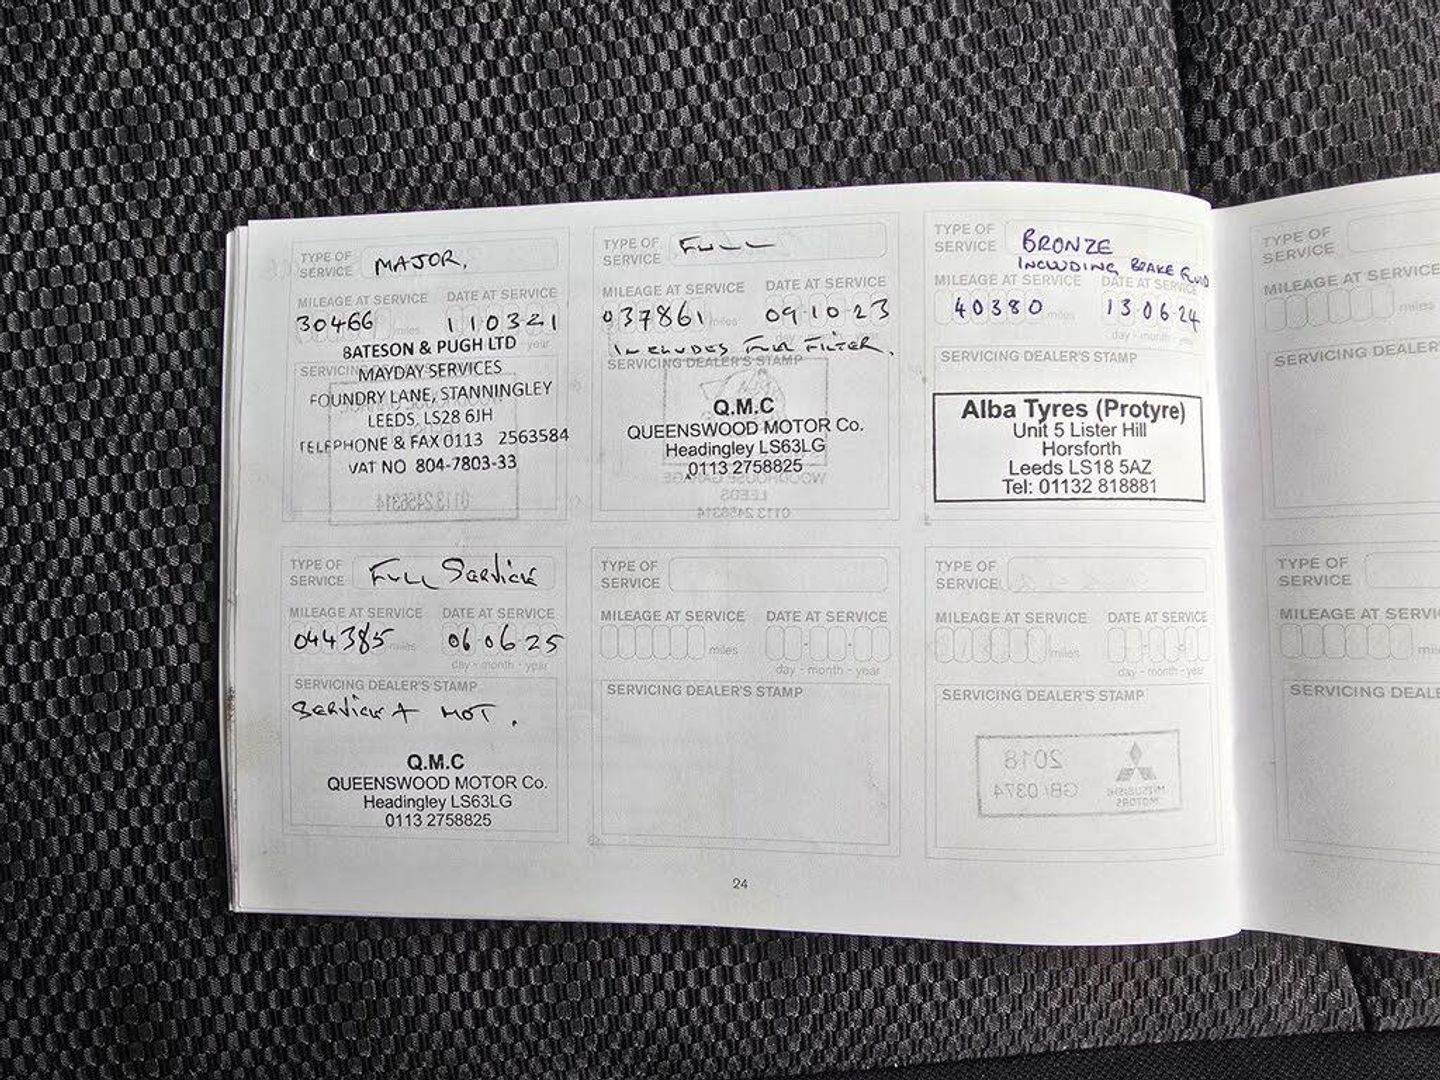 TYPE OF
SERVICE
MAJOR.
MILEAGE AT SERVICE
DATE AT SERVICE
30466 miles
110321
year
BATESON & PUGH LTD
SERVICING
MAYDAY SERVICES
FOUNDRY LANE, STANNINGLEY
LEEDS, LS28 6JH
TELEPHONE & FAX 0113 2563584
VAT NO 804-7803-33
01132456314
TYPE OF
SERVICE
FULL
MILEAGE AT SERVICE
DATE AT SERVICE
037861 miles
09 10 23
INCLUDES FUEL FILTER.
SERVICING DEALER'S STAMP
Q.M.C
QUEENSWOOD MOTOR Co.
Headingley LS63LG
0113 2758825
WOODHOUSE GARAGE
LEEDS
0113 2456314
TYPE OF
SERVICE
BRONZE
INCLUDING BRAKE FLUID
MILEAGE AT SERVICE
DATE AT SERVICE
40380 miles
13.06.24
day - month - year
SERVICING DEALER'S STAMP
Alba Tyres (Protyre)
Unit 5 Lister Hill
Horsforth
Leeds LS18 5AZ
Tel: 01132 818881
TYPE OF
SERVICE
MILEAGE AT SERVICE
miles
SERVICING DEALER'
TYPE OF
SERVICE
FULL SERVICE
MILEAGE AT SERVICE
DATE AT SERVICE
044385 miles
06 06 25
day - month - year
SERVICING DEALER'S STAMP
SERVICE + MOT.
Q.M.C
QUEENSWOOD MOTOR Co.
Headingley LS63LG
0113 2758825
TYPE OF
SERVICE
MILEAGE AT SERVICE
DATE AT SERVICE
miles
day - month - year
SERVICING DEALER'S STAMP
TYPE OF
SERVICE
MILEAGE AT SERVICE
DATE AT SERVICE
miles
day - month - year
SERVICING DEALER'S STAMP
2018
GB/0374
MITSUBISHI
MOTORS
TYPE OF
SERVICE
MILEAGE AT SERVI
mil
SERVICING DEAL
24